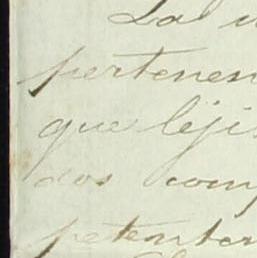 La
pertenen
que lejis
dos comp
petenten